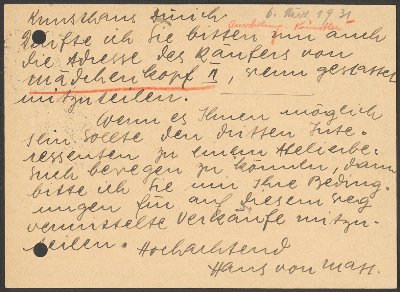 Kunsthaus Zürich.
6. März 1931
Dürfte ich Sie bitten mir auch
die Adresse des Käufers von
Mädchenkopf II, wenn gestattet
mitzuteilen.
Wenn es Ihnen möglich
sein sollte den dritten Inte-
ressenten zu einem Atelierbe-
such bewegen zu können, dann
bitte ich Sie um Ihre Beding-
ungen für auf diesem Weg
vermittelte Verkäufe mitzu-
teilen. Hochachtend
Hans von Matt.